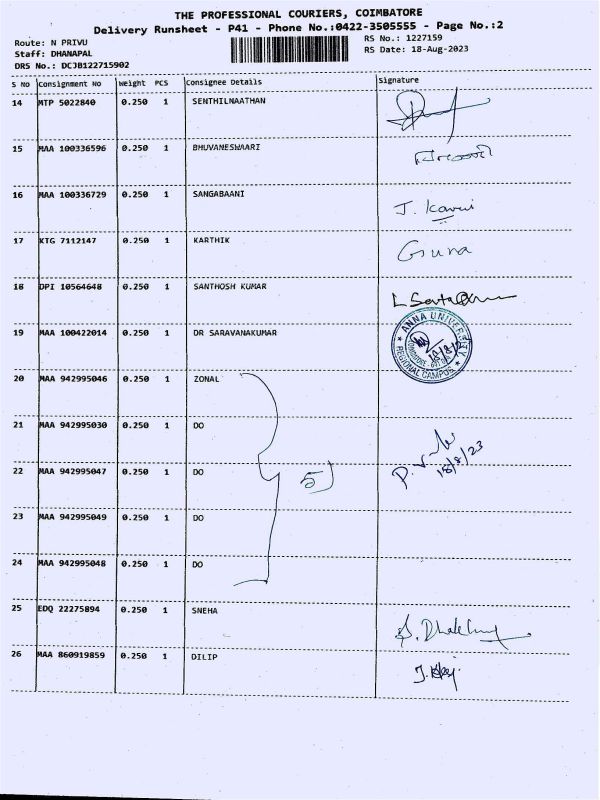 THE PROFESSIONAL COURIERS, COIMBATORE
Delivery Runsheet - P41 - Phone No.:0422-3505555 - Page No.:2
Route: N PRIVU
Staff: DHANAPAL
DRS No.: DCJB122715902
RS No.: 1227159
RS Date: 18-Aug-2023
S No Consignment No Weight PCS Consignee Details Signature
14 MTP 5022840 0.250 1 SENTHILNAATHAN
15 MAA 100336596 0.250 1 BHUVANESWAARI
16 MAA 100336729 0.250 1 SANGABAANI J. Kavui
17 KTG 7112147 0.250 1 KARTHIK Guna
18 DPI 10564648 0.250 1 SANTHOSH KUMAR
19 MAA 100422014 0.250 1 DR SARAVANAKUMAR
ANNA UNIVERSITY
REGIONAL CAMPUS
20 MAA 942995046 0.250 1 ZONAL
21 MAA 942995030 0.250 1 DO
22 MAA 942995047 0.250 1 DO 5) 18/8/23
23 MAA 942995049 0.250 1 DO
24 MAA 942995048 0.250 1 DO
25 EDQ 22275894 0.250 1 SNEHA
26 MAA 860919859 0.250 1 DILIP